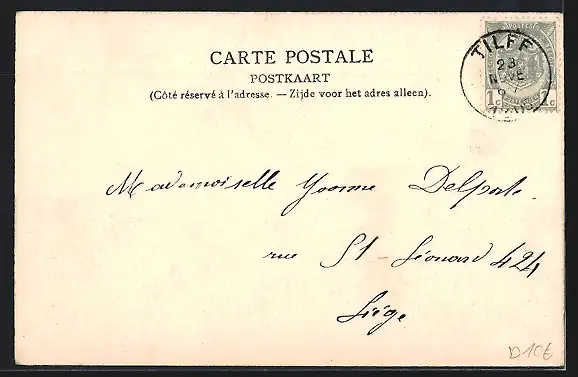 CARTE POSTALE
POSTKAART
(Côté réservé à l'adresse. — Zijde voor het adres alleen).
TILFF
23
NOVE
1c 1c
Mademoiselle Yvonne Delporte.
rue St-Léonard 424
Liège
D10E